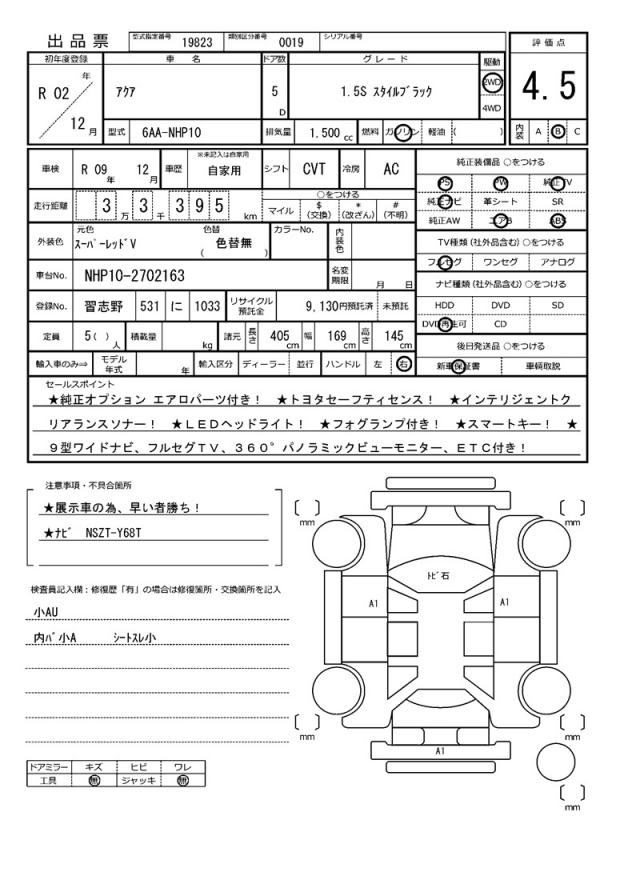 出品票 型式指定番号 19823 類別区分番号 0019 シリアル番号
評価点
4.5
内装 A B C
初年度登録 車名 ドア数 グレード 駆動
R 02 年 12 月
アクア 5 D 1.5S スタイルブラック 2WD 4WD
型式 6AA-NHP10 排気量 1.500 cc 燃料 ガソリン 軽油 ( )
車検 R 09 年 12 月 車歴 ※未記入は自家用 自家用 シフト CVT 冷房 AC
走行距離 3 万 3 千 3 9 5 km
○をつける
マイル $ (交換) * (改ざん) # (不明)
外装色 元色 スーパーレッドV 色替 ( 色替無 ) カラーNo. 内装色
車台No. NHP10-2702163 名変期限 月 日
登録No. 習志野 531 に 1033 リサイクル預託金 9,130円預託済 未預託
定員 5( ) 人 積載量 kg 諸元 長さ 405 cm 幅 169 cm 高さ 145 cm
輸入車のみ⇒ モデル年式 年 輸入区分 ディーラー 並行 ハンドル 左 右
純正装備品 ○をつける
PS PW 純正TV
純正ナビ 革シート SR
純正AW エアB ABS
TV種類 (社外品含む) ○をつける
フルセグ ワンセグ アナログ
ナビ種類 (社外品含む) ○をつける
HDD DVD SD
DVD再生可 CD
後日発送品 ○をつける
新車保証書 車輌取説
セールスポイント
★純正オプション エアロパーツ付き! ★トヨタセーフティセンス! ★インテリジェントク
リアランスソナー! ★LEDヘッドライト! ★フォグランプ付き! ★スマートキー! ★
9型ワイドナビ、フルセグTV、360°パノラミックビューモニター、ETC付き!
注意事項・不具合箇所
★展示車の為、早い者勝ち!
★ナビ NSZT-Y68T
検査員記入欄:修復歴「有」の場合は修復箇所・交換箇所を記入
小AU
内バ小A シートスレ小
ドアミラー キズ ヒビ ワレ
工具 無 ジャッキ 無
[ ] mm
[ ] mm
トビ石
A1
A1
[ ] mm
[ ] mm
A1
[ ] mm